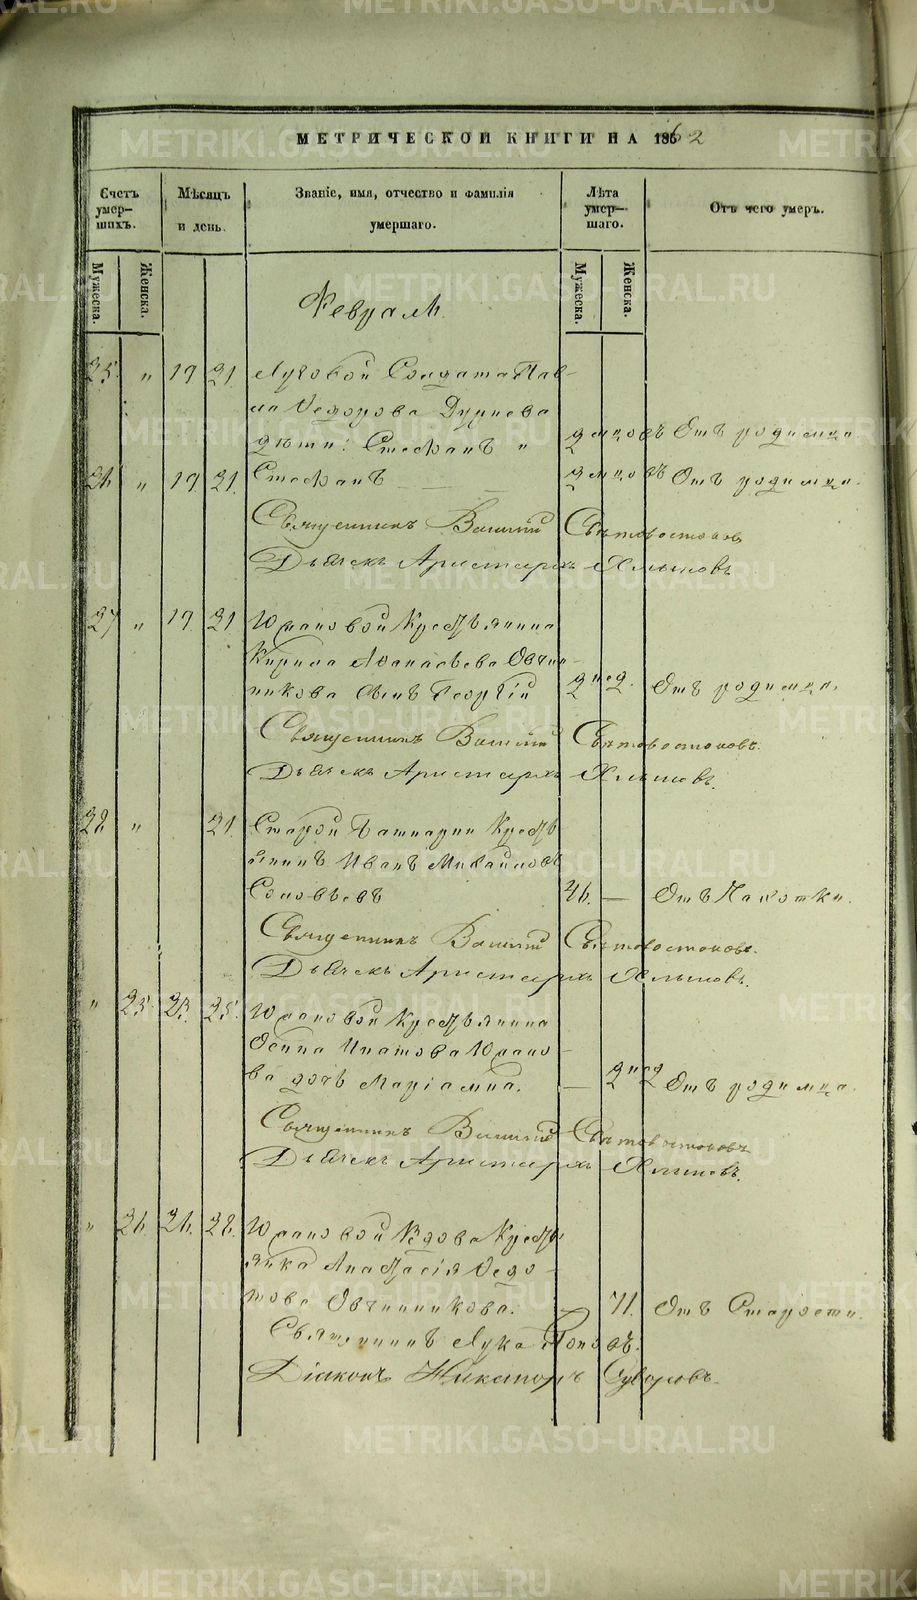 МЕТРИЧЕСКОЙ КНИГИ НА 1862
Счетъ умер-шихъ.
Мѣсяцъ и день.
Званіе, имя, отчество и фамилія умершаго.
Лѣта умер-шаго.
Отъ чего умеръ.
Мужеска.
Женска.
Мужеска.
Женска.
Февраля
25. " 19 21 Луговой Солдата Пав-
ла Ѳедорова Дурнева
дѣти: Стефанъ " 2 мцовъ Отъ родимца.
26 " 19 21. Стефанъ 2 мцовъ Отъ родимца.
Священникъ Василій Свѣтовостоковъ
Дьячекъ Аристархъ Хлыновъ
27 " 19. 21 Юрмановой Крестьянина
Кирила Аѳанасьева Овчин-
никова сынъ Георгій 2 нед. Отъ родимца.
Священникъ Василій Свѣтовостоковъ.
Дьячекъ Аристархъ Хлыновъ.
28 " 21. Старой Крестья-
янинъ Иванъ Михайловъ
Соловьевъ 46. — Отъ Чахотки.
Священникъ Василій Свѣтовостоковъ.
Дьячекъ Аристархъ Хлыновъ.
" 25. 23. 25. Крестьянина
Осипа Игнатова
дочь Маріамна. — 2 нед Отъ родимца.
Священникъ Василій Свѣтовостоковъ
Дьячекъ Аристархъ Хлыновъ.
" 26. 26. 28. Вдова Кресть-
янка Анастасія Ѳедо-
това Овчинникова. — 71. Отъ Старости.
Священникъ Лука Поповъ.
Діаконъ Никаноръ Суворовъ.
METRIKI.GASO-URAL.RU